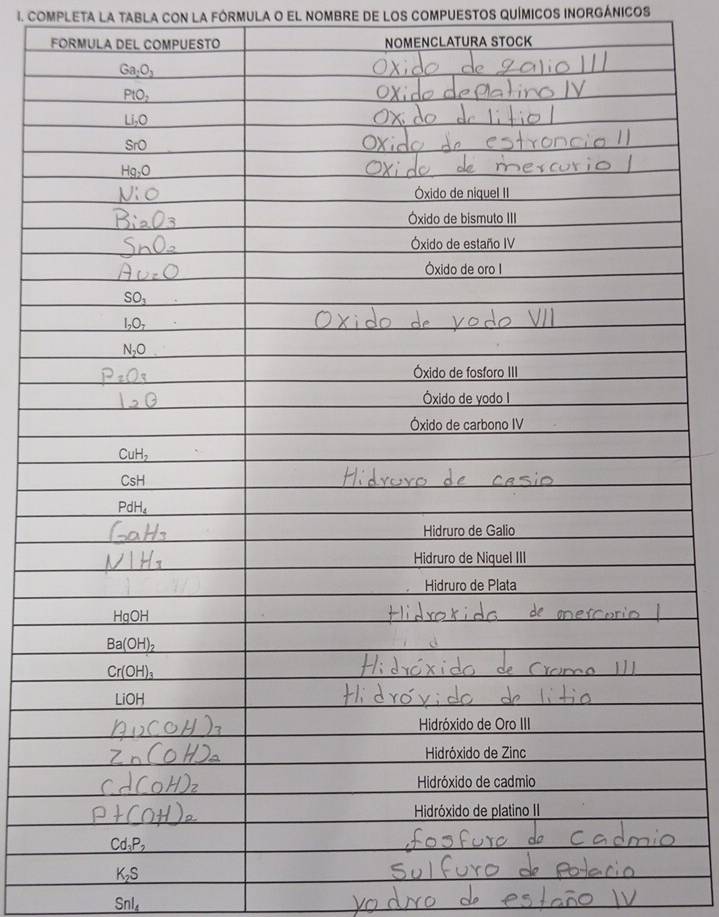 I. COMPLETA LA TABLA CON LA FÓRMULA O EL NOMBRE DE LOS COMPUESTOS QUÍMICOS INORGÁNICOS
FORMULA DEL COMPUESTO NOMENCLATURA STOCK
Ga₂O₃ Oxido de galio III
PtO₂ oxido de platino IV
Li₂O Oxido de litio I
SrO Oxido de estroncio II
Hg₂O Oxido de mercurio I
NiO Óxido de niquel II
Bi₂O₃ Óxido de bismuto III
SnO₂ Óxido de estaño IV
Au₂O Óxido de oro I
SO₃
I₂O₇ Oxido de yodo VII
N₂O
P₂O₃ Óxido de fosforo III
I₂O Óxido de yodo I
Óxido de carbono IV
CuH₂
CsH Hidruro de cesio
PdH₄
GaH₃ Hidruro de Galio
NIH₃ Hidruro de Niquel III
Hidruro de Plata
HgOH Hidroxido de mercurio I
Ba(OH)₂
Cr(OH)₃ Hidróxido de Cromo III
LiOH Hidróxido de litio
Au(OH)₃ Hidróxido de Oro III
Zn(OH)₂ Hidróxido de Zinc
Cd(OH)₂ Hidróxido de cadmio
Pt(OH)₂ Hidróxido de platino II
Cd₃P₂ fosfuro de cadmio
K₂S Sulfuro de potacio
SnI₄ yoduro de estaño IV